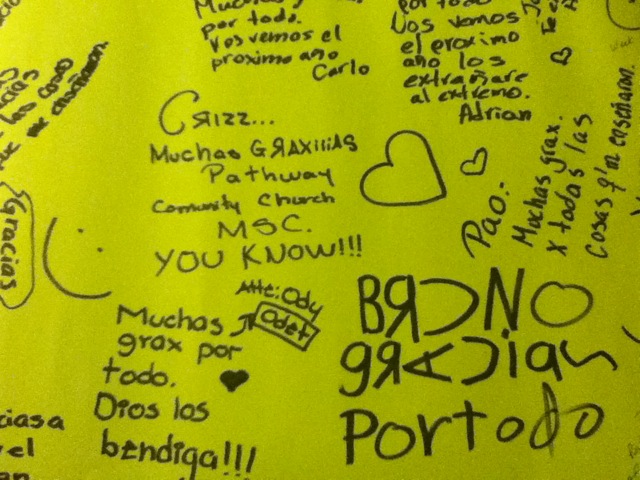 por todo.
Vos vemos el
proximo año
Carlo
por todo
Nos vemos
el proximo
año los
extrañare
al extremo.
Adrian
Crizz...
Muchas GRAXiiiAS
Pathway
Comunity Church
MSC.
YOU KNOW!!!
Pao:-
Muchas grax.
x todas las
Cosas q' m enseñaron.
Gracias
Atte: Ody
Odet
Muchas
grax por
todo.
Dios los
bendiga!!!
BRUNO
gracias
Por todo
ciasa
el